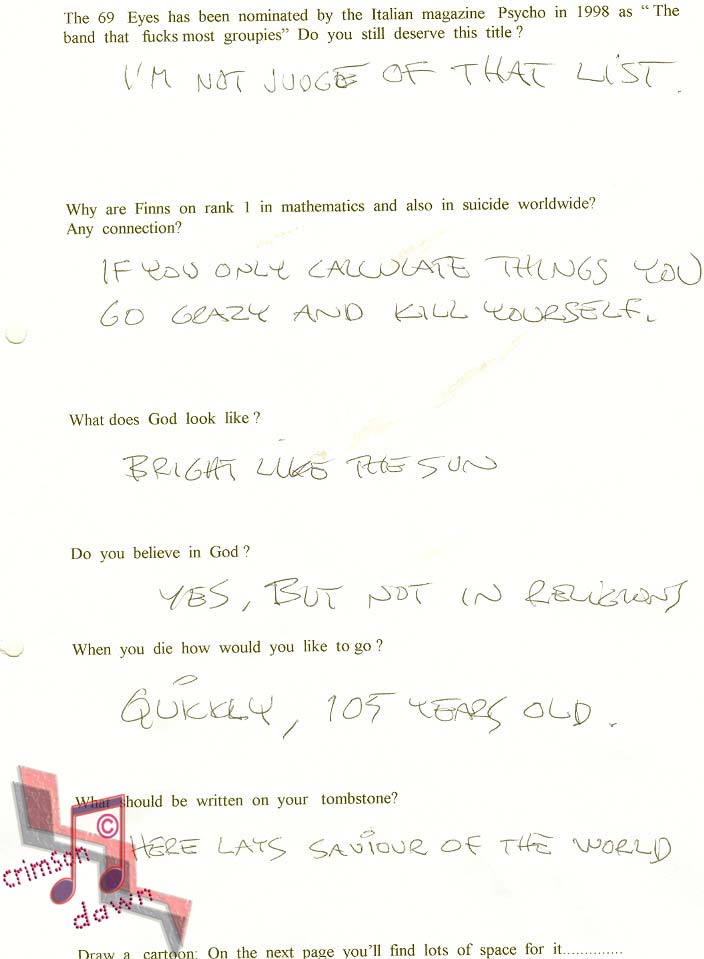 The 69 Eyes has been nominated by the Italian magazine Psycho in 1998 as “The
band that fucks most groupies” Do you still deserve this title?
I'M NOT JUDGE OF THAT LIST.
Why are Finns on rank 1 in mathematics and also in suicide worldwide?
Any connection?
IF YOU ONLY CALCULATE THINGS YOU
GO CRAZY AND KILL YOURSELF.
What does God look like?
BRIGHT LIKE THE SUN
Do you believe in God?
YES, BUT NOT IN RELIGIONS
When you die how would you like to go?
QUIKKLY, 105 YEARS OLD.
What should be written on your tombstone?
HERE LAYS SAVIOUR OF THE WORLD
©
crimson
dawn
Draw a cartoon: On the next page you'll find lots of space for it..............